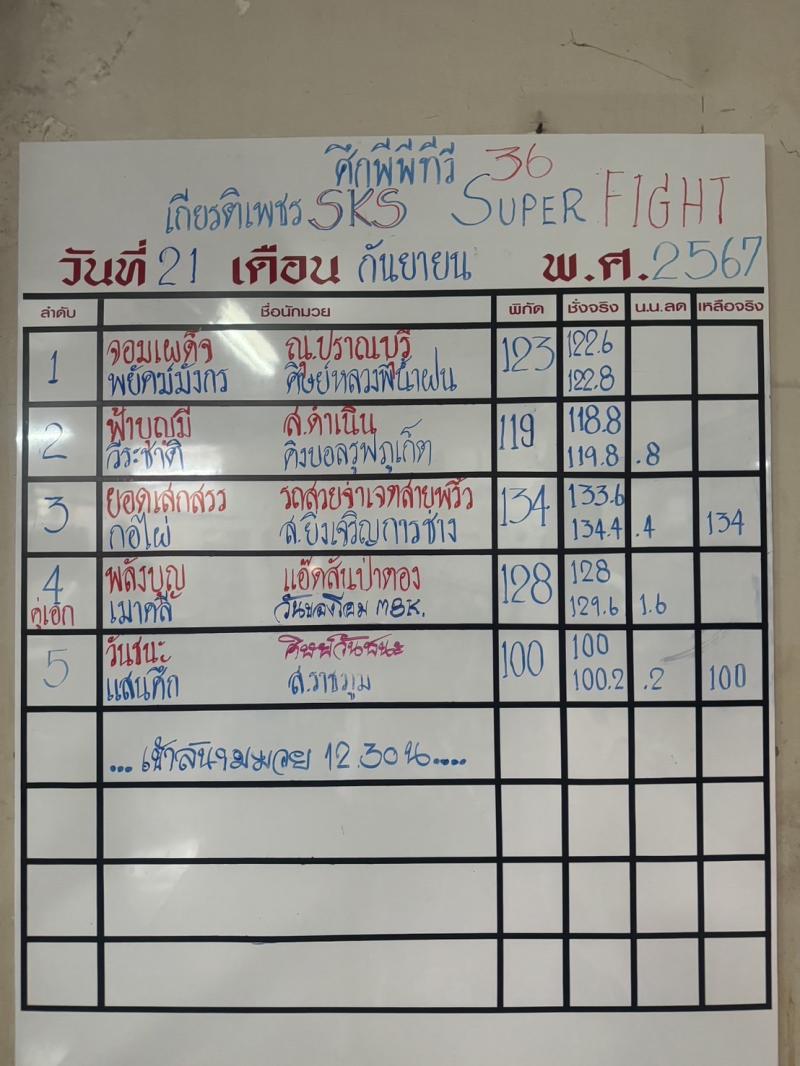 ศึกพีพีทีวี 36
เกียรติเพชร SKS SUPER FIGHT
วันที่ 21 เดือน กันยายน พ.ศ. 2567
ลำดับ ชื่อนักมวย พิกัด ชั่งจริง น.น.ลด เหลือจริง
1 จอมเผด็จ ณ.ปราณบุรี 123 122.6
พยัคฆ์มังกร ศิษย์หลวงพี่น้ำฝน 122.8
2 ฟ้าบุญมี ส.ดำเนิน 119 118.8
วีระชาติ คิงบอลรูฟภูเก็ต 119.8 .8
3 ยอดเสกสรร รถสวยจ่าเจตสายพริ้ว 134 133.6
กอไผ่ ส.ยิ่งเจริญการช่าง 134.4 .4 134
4 พลังบุญ แอ๊ดสันป่าตอง 128 128
คู่เอก เมาคลี วันของโอม MBK. 129.6 1.6
5 วันชนะ ศิษย์วันชนะ 100 100
แสนศึก ส.ราชภูม 100.2 .2 100
... เข้าสนามมวย 12.30 น....